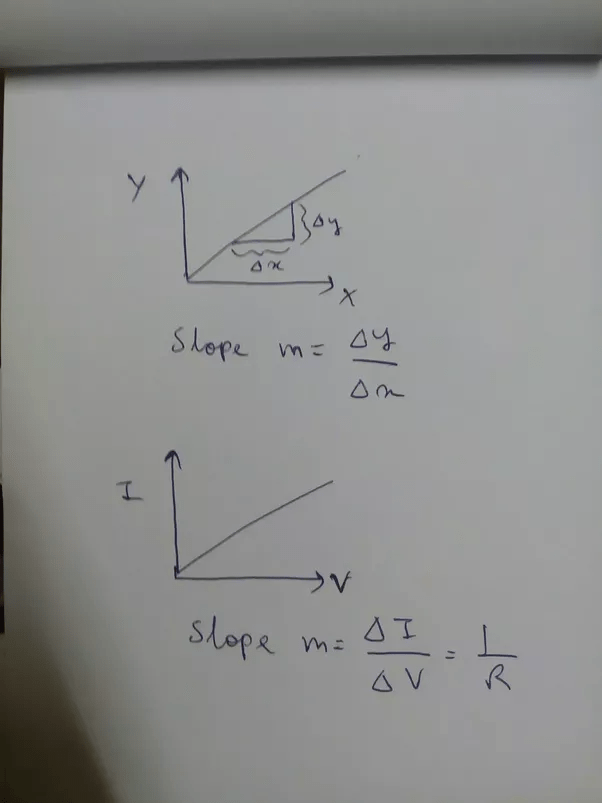 Y
Δy
Δx
X
Slope m = Δy / Δx
I
V
Slope m = ΔI / ΔV = 1 / R